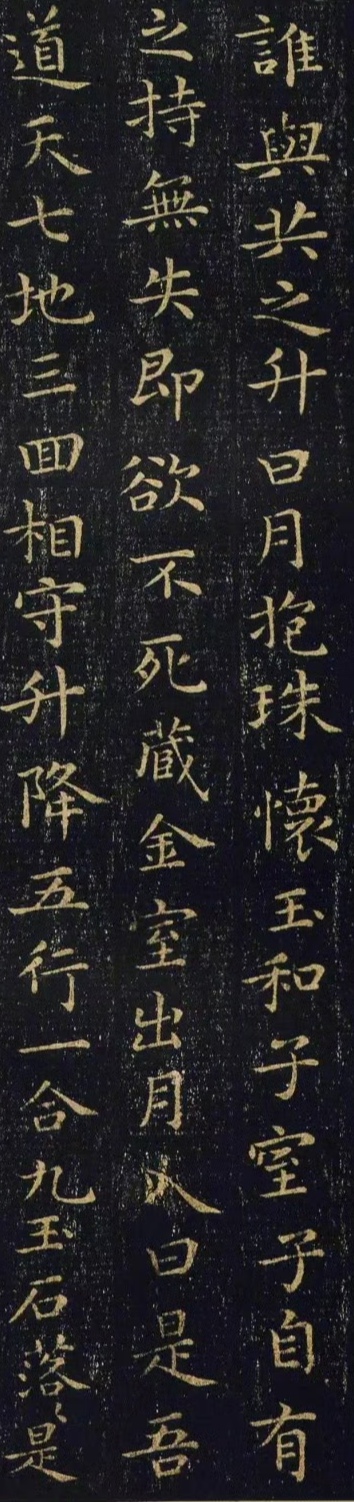 誰與共之升日月抱珠懷玉和子室子自有
之持無失即欲不死藏金室出月入日是吾
道天七地三回相守升降五行一合九玉石落〻是